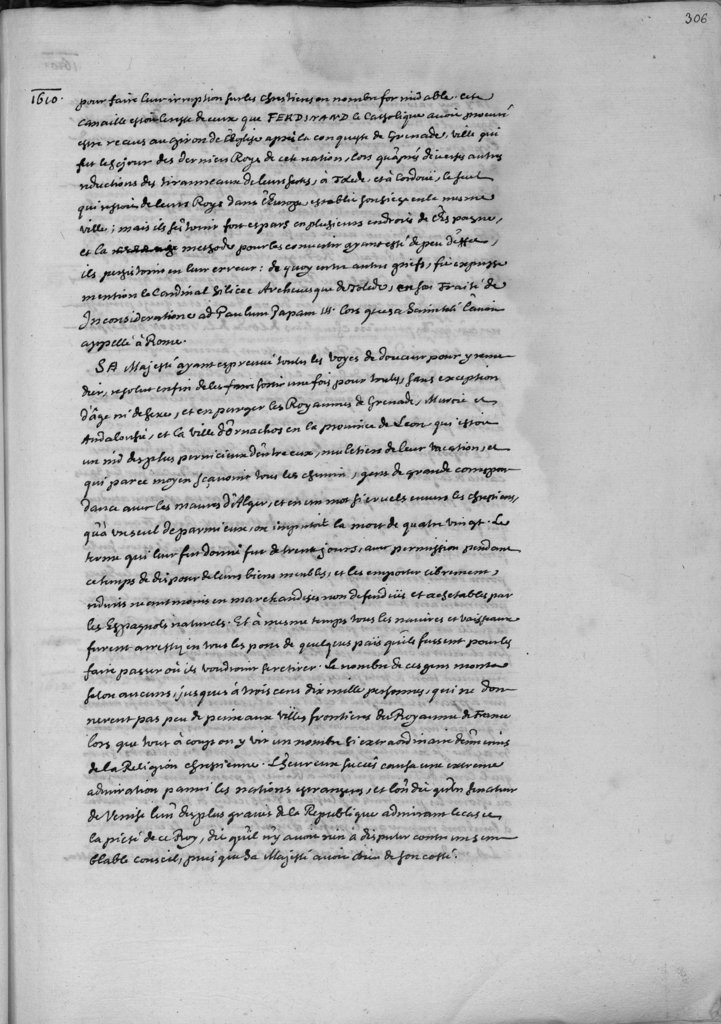 306
1610.
pour faire leur irruption sur les Chrestiens en nombre formidable. cete
canaille estoit le reste de ceux que FERDINAND le Catholique avoit procuré
estre receus au giron de l'Eglise apres la conqueste de Grenade, ville qui
fut le sejour des derniers Roys de cete nation, lors qu'apres diverses autres
reductions des tiranneaux de leurs sectes, à Tolede, et à Cordoüe, le seul
qui restoit de leurs Roys dans l'Europe establit son siege en la mesme
ville; mais ils s'estoient fort espars en plusieurs endrois de l'Espagne,
et la methode pour les convertir ayant esté de peu d'effet,
ils persistoient en leur erreur: de quoy entre autres griefs, fit expresse
mention le Cardinal Silicee Archevesque de Tolede, en son Traité de
Inconsideratione ad Paulum Papam IV. lors que sa Sainteté l'avoit
appellé à Rome.
SA Majesté ayant esprouvé toutes les voyes de douceur pour y reme-
dier, resolut enfin de les faire sortir une fois pour toutes, sans exception
d'âge ni de sexe, et en purger les Royaumes de Grenade, Murcie et
Andalousie, et la ville d'Ornachos en la province de Leon qui estoit
un nid des plus pernicieux d'entre eux, muletiers de leur vacation, et
qui par ce moyen sçavoient tous les chemins, gens de grande correspon-
dance avec les maures d'Alger, et en un mot si cruels envers les chrestiens,
qu'à un seul de parmi eux, on imputoit la mort de quatre vingt. Le
terme qui leur fut donné fut de trente jours, avec permission pendant
ce temps de disposer de leurs biens meubles, et les emporter librement,
reduits neantmoins en marchandises non defendües et achetables par
les Espagnols naturels. Et à mesme temps tous les navires et vaisseaux
furent arrestez en tous les pors de quelques païs qu'ils fussent pour les
faire passer où ils voudroient se retirer. Le nombre de ces gens monta
selon aucuns, jusques à trois cens dix mille personnes, qui ne don-
nerent pas peu de peine aux villes frontieres du Royaume de France
lors que tout à coup on y vit un nombre si extraordinaire d'ennemis
de la Religion chrestienne. L'heureux succés causa une extreme
admiration parmi les nations estrangeres, et l'on dit qu'un senateur
de Venise l'un des plus graves de la Republique admirant le cas et
la pieté de ce Roy, dit qu'il n'y avoit rien à disputer contre un sem-
blable conseil, puis que Sa Majesté avoit Dieu de son costé.